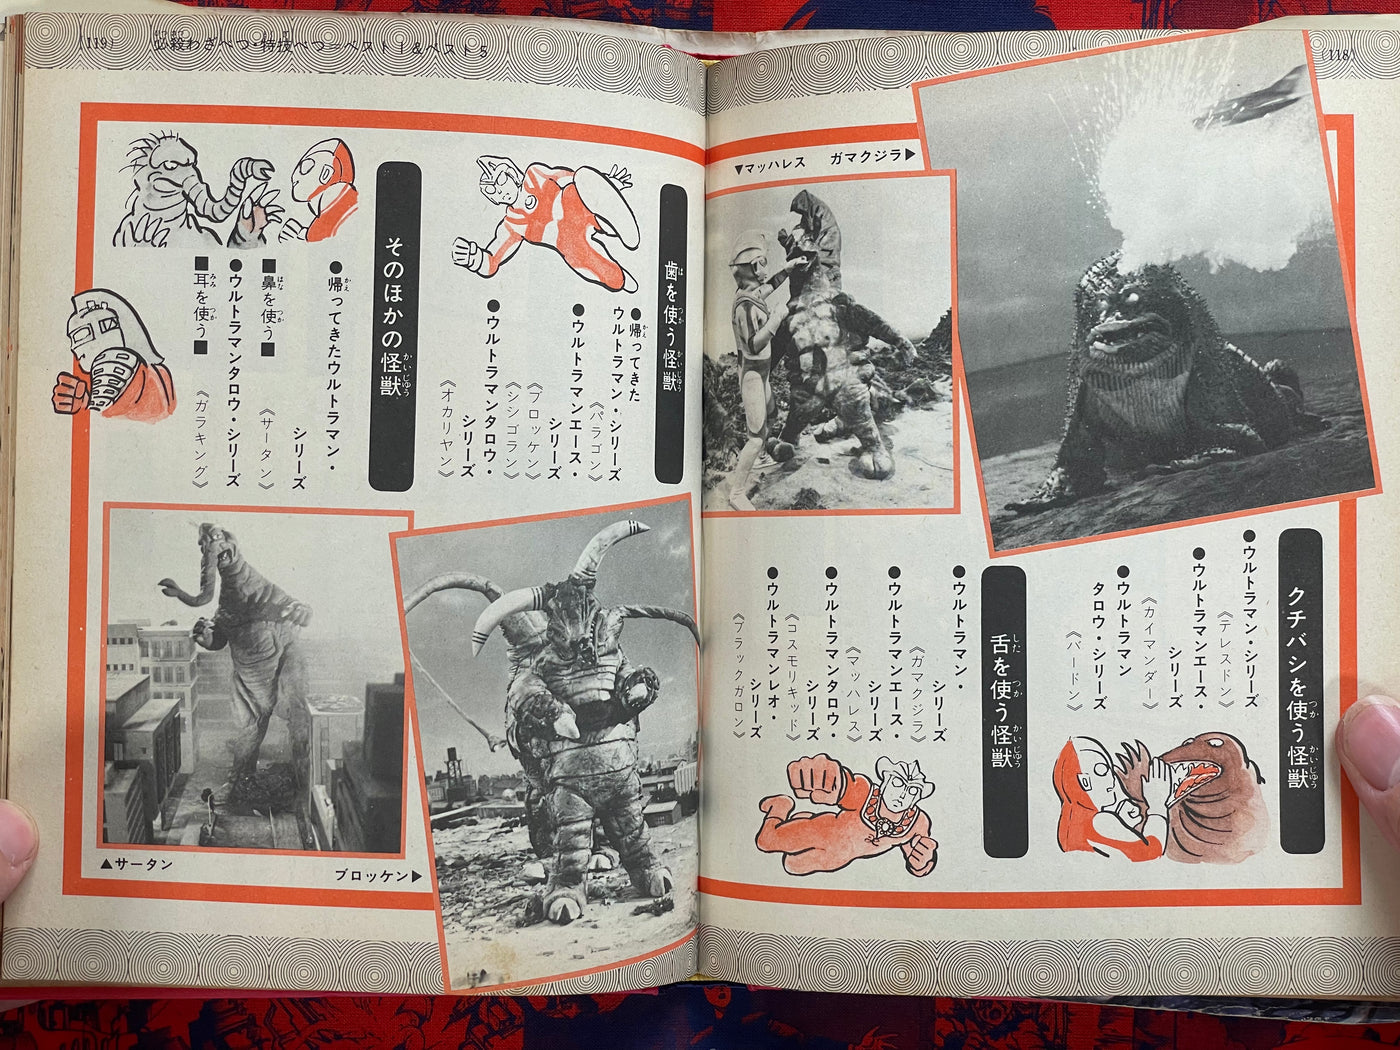 (118)
ガマクジラ▶
▼マッハレス
クチバシを使う怪獣
つか
かいじゅう
●ウルトラマン・シリーズ
《テレスドン》
●ウルトラマンエース・
シリーズ
《カイマンダー》
●ウルトラマン
タロウ・シリーズ
《バードン》
舌を使う怪獣
した
つか
かいじゅう
●ウルトラマン・
シリーズ
《ガマクジラ》
●ウルトラマンエース・
シリーズ
《マッハレス》
●ウルトラマンタロウ・
シリーズ
《コスモリキッド》
●ウルトラマンレオ・
シリーズ
《ブラックガロン》
(119)
必殺わざべつ・特技べつ=ベスト1&ベスト5
歯を使う怪獣
は
つか
かいじゅう
●帰ってきた
かえ
ウルトラマン・シリーズ
《パラゴン》
●ウルトラマンエース・
シリーズ
《ブロッケン》
《シシゴラン》
●ウルトラマンタロウ・
シリーズ
《オカリヤン》
そのほかの怪獣
かいじゅう
●帰ってきたウルトラマン・
かえ
シリーズ
■鼻を使う■
はな
つか
《サータン》
●ウルトラマンタロウ・シリーズ
■耳を使う■
みみ
つか
《ガラキング》
▲サータン
ブロッケン▶